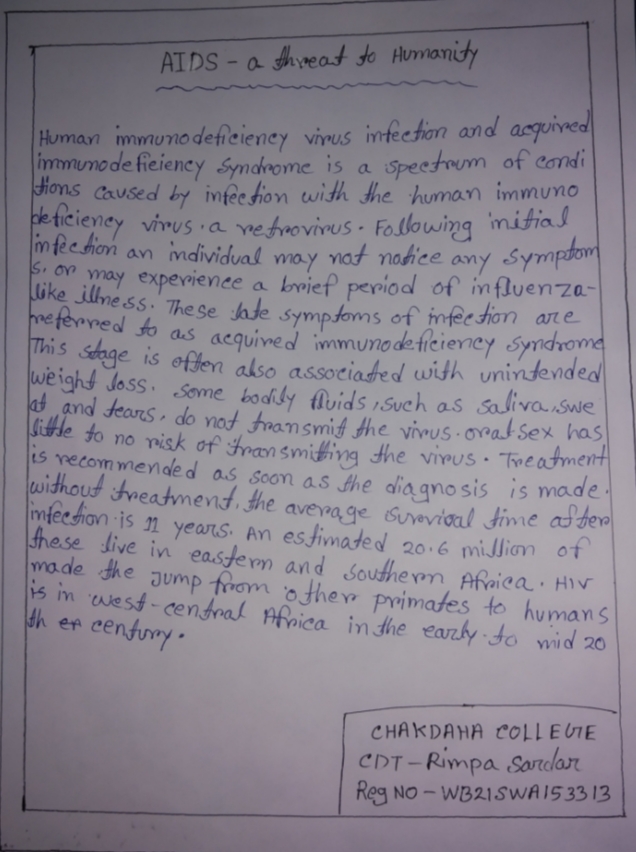 AIDS - a threat to Humanity
Human immunodeficiency virus infection and acquired
immunodeficiency syndrome is a spectrum of condi
tions caused by infection with the human immuno
deficiency virus. a retrovirus. Following initial
infection an individual may not notice any symptom
s. or may experience a brief period of influenza-
like illness. These late symptoms of infection are
referred to as acquired immunodeficiency syndrome
This stage is often also associatted with unintended
weight loss. some bodily fluids, such as saliva, swe
at and tears, do not transmit the virus. oral sex has
little to no risk of transmitting the virus. Treatment
is recommended as soon as the diagnosis is made.
without treatment, the average survival time after
infection is 11 years. An estimated 20.6 million of
these live in eastern and southern Africa. HIV
made the jump from other primates to humans
is in west-central Africa in the early-to mid 20
th century.
CHAKDAHA COLLEGE
CDT - Rimpa Sardar
Reg NO - WB21SWA153313